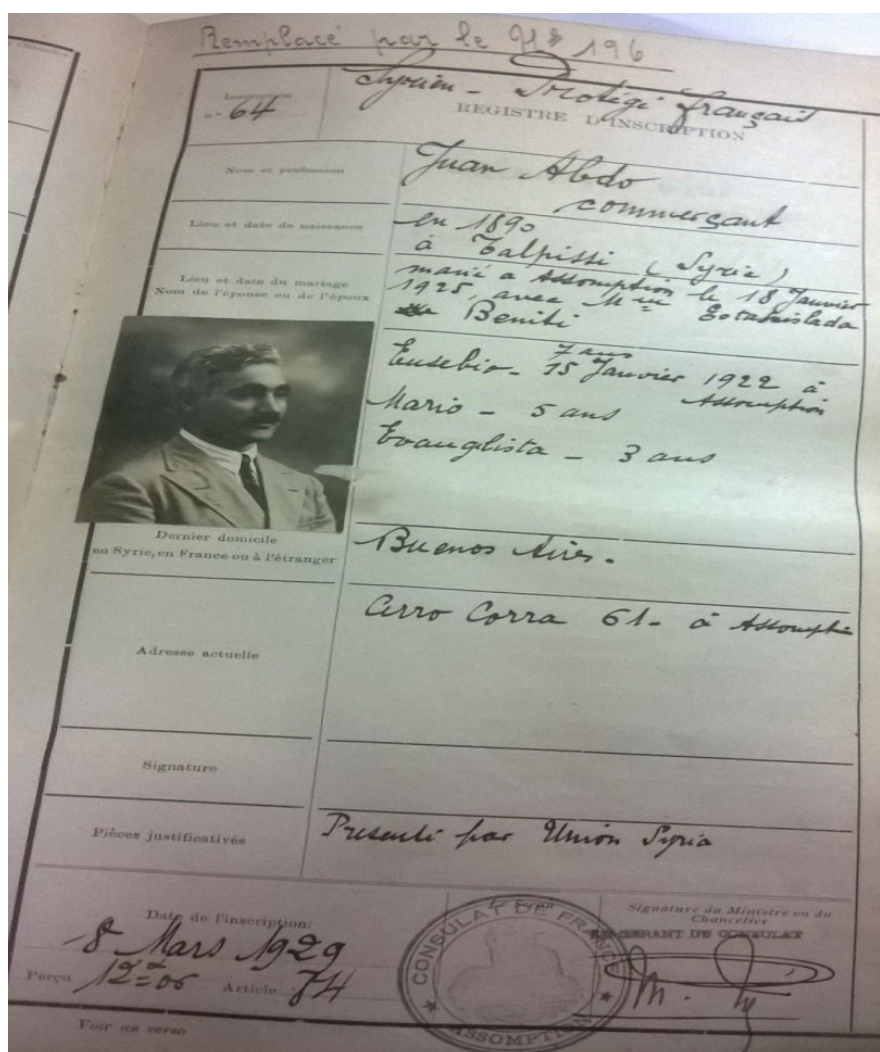 Remplacé par le No 196
Syrien - Protégé français
Inscription
n° 64
REGISTRE D'INSCRIPTION
Nom et profession
Juan Abdo
commerçant
Lieu et date de naissance
en 1890
à Talpissi (Syrie)
Lieu et date du mariage
Nom de l'épouse ou de l'époux
marié à Assomption le 18 Janvier
1925, avec Mlle Estanislada
Beniti
7 ans
Eusebio - 15 Janvier 1922 à
Assomption
Mario - 5 ans
Evangelista - 3 ans
Dernier domicile
en Syrie, en France ou à l'étranger
Buenos Aires.
Adresse actuelle
Cerro Corra 61 - à Assomption
Signature
Pièces justificatives
Présenté par Unión Syria
Date de l'inscription:
8 Mars 1929
Perçu 12 = 06 Article 74
Voir au verso
CONSULAT DE FRANCE
ASSOMPTION
Signature du Ministre ou du
Chancelier
LE GERANT DU CONSULAT